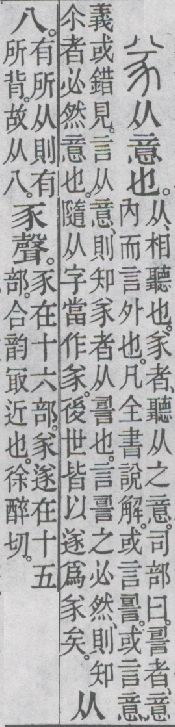 㒸从意也。
从、相聽也。㒸者、聽从之意。司部曰。䛐者、意
內而言外也。凡全書說解。或言䛐。或言意。
義或錯見。言从意、則知㒸者从䛐也。言䛐之必然、則知
尒者必然意也。隨从字當作㒸。後世皆以遂爲㒸矣。
从
八。
有所从則有
所背。故从八。
豕聲。
豕在十六部。㒸遂在十五
部。合韵冣近也。徐醉切。